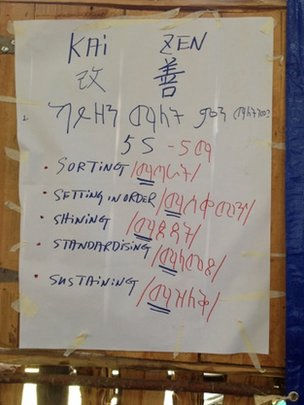 KAI ZEN
改 善
ካይዘን ማለት ምን ማለት ነው?
5S - 5ማ
• SORTING /ማጣራት/
• SETTING IN ORDER /ማስቀመጥ/
• SHINING /ማጽዳት/
• STANDARDISING /ማላመድ/
• SUSTAINING /ማዝለቅ/